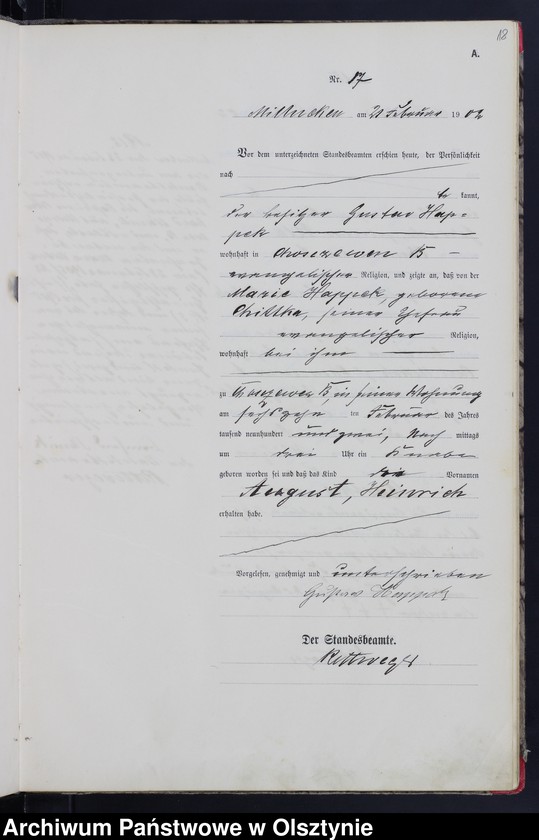 18
A.
Nr. 17
Milucken am 21 Februar 1902
Vor dem unterzeichneten Standesbeamten erschien heute, der Persönlichkeit
nach
be kannt,
der Besitzer Gustav Hap-
pek
wohnhaft in Chosczewen B
evangelischer Religion, und zeigte an, daß von der
Marie Happek, geborenen
Chittka, seiner Ehefrau
evangelischer Religion,
wohnhaft bei ihm
zu Chosczewen B, in seiner Wohnung
am sechszehn ten Februar des Jahres
tausend neunhundert und zwei, Nach mittags
um drei Uhr ein Knabe
geboren worden sei und daß das Kind die Vornamen
August, Heinrich
erhalten habe.
Vorgelesen, genehmigt und unterschrieben
Gustav Happek
Der Standesbeamte.
Archiwum Państwowe w Olsztynie